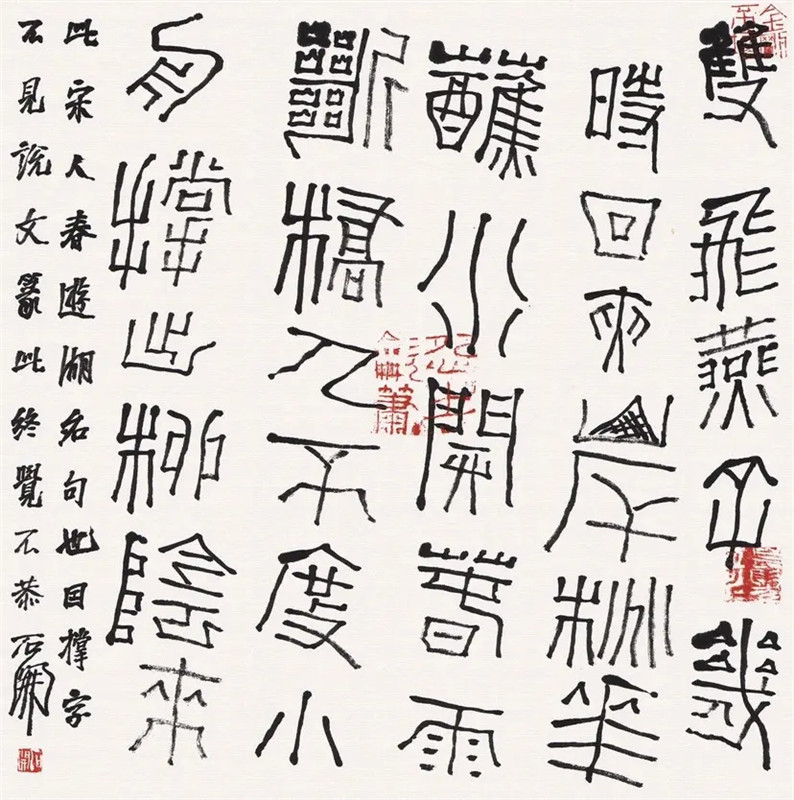 雙飛燕子幾
時回夾岸桃花
蘸水開春雨
斷橋人不度小
舟撐出柳陰來
此宋人春遊湖名句也目撐字
不見說文篆此終覺不恭石開